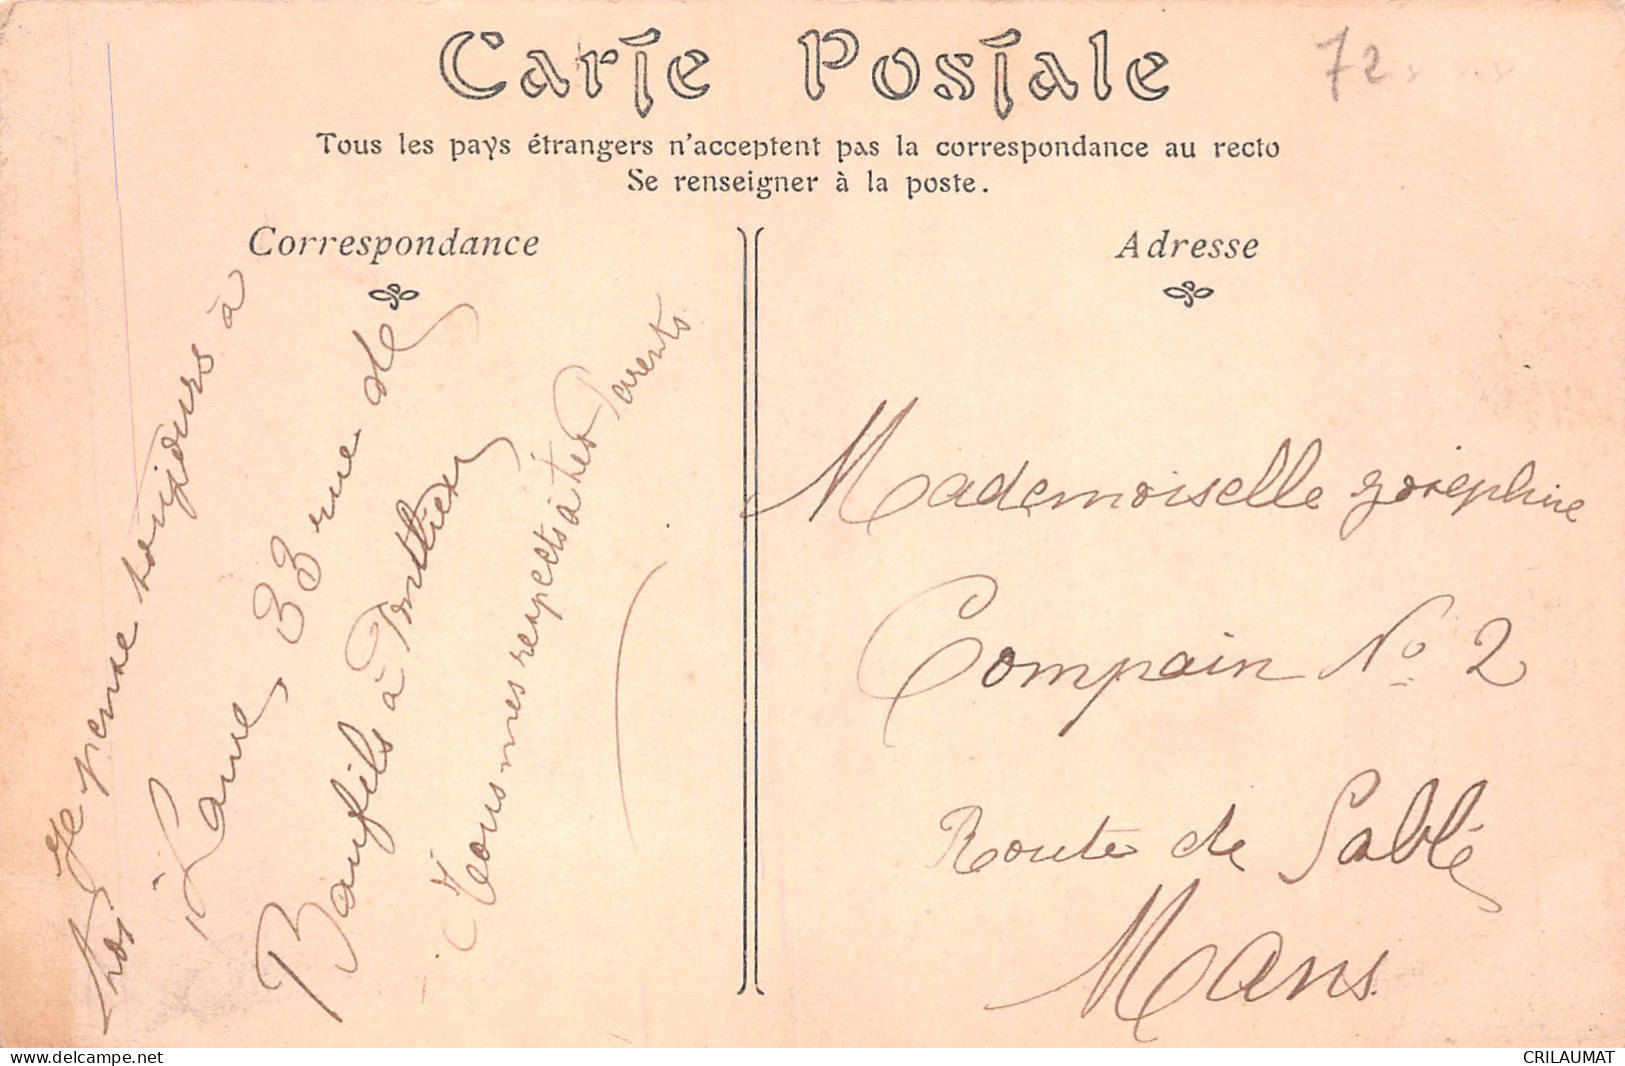 Carte Postale
72
Tous les pays étrangers n'acceptent pas la correspondance au recto
Se renseigner à la poste.
Correspondance
Je pense toujours à
toi
33 rue de
Bonfils à
Tous mes respects à tes Parents
Adresse
Mademoiselle Joséphine
Compain No 2
Route de Sablé
Mans
delcampe.net
CRILAUMAT